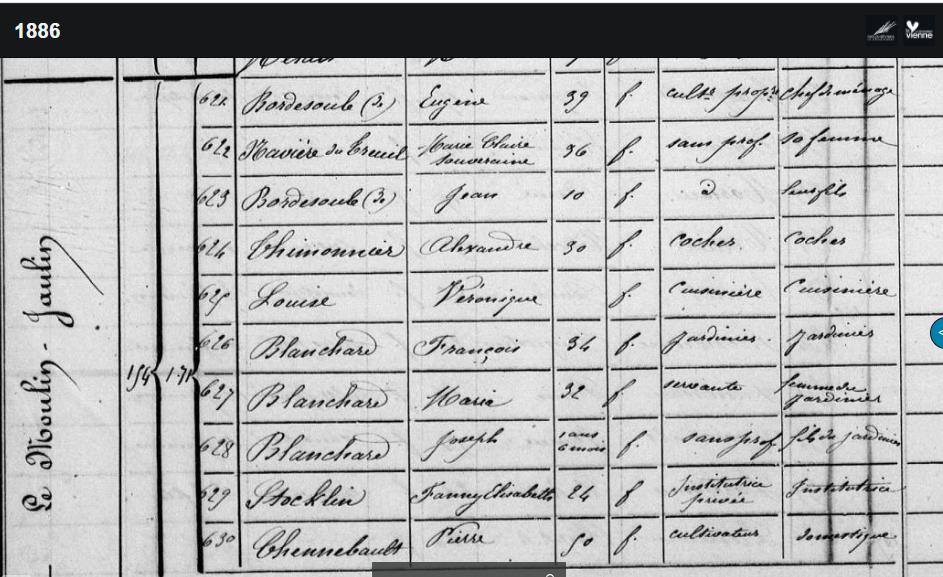 1886
vienne
Le Moulin - Jaulin
154 171
621 Bordesoule (De) Eugène 39 f. cultr propre chef de ménage
622 Navière du Treuil Marie Claire souveraine 36 f. sans prof. sa femme
623 Bordesoule (De) Jean 10 f. d leur fils
624 Thimonnier Alexandre 30 f. cocher cocher
625 Louise Véronique f. cuisinière cuisinière
626 Blanchard François 34 f. jardinier jardinier
627 Blanchard Maria 32 f. servante femme du jardinier
628 Blanchard Joseph 1 ans 6 mois f. sans prof fils du jardinier
629 Stocklin Fanny Elisabeth 24 f Institutrice privée Institutrice
630 Chennebault Pierre 50 f. cultivateur domestique